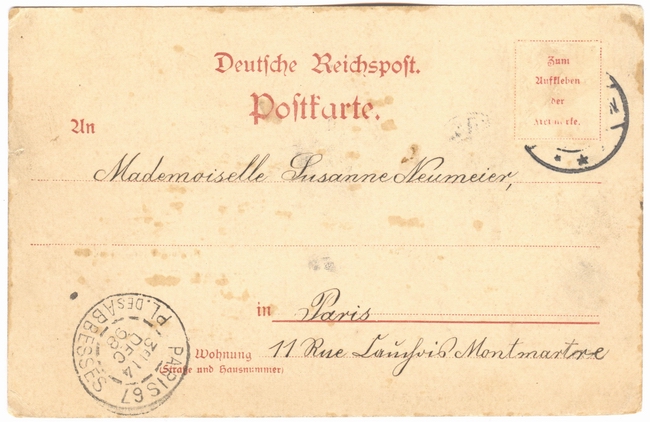 Deutsche Reichspost.
Postkarte.
Zum
Aufkleben
der
Freimarke.
An
Mademoiselle Susanne Neumeier,
in Paris
Wohnung 11 Rue Cauchois Montmartre
(Straße und Hausnummer)
PARIS 67
PL. DES ABBESSES
14
DEC
98